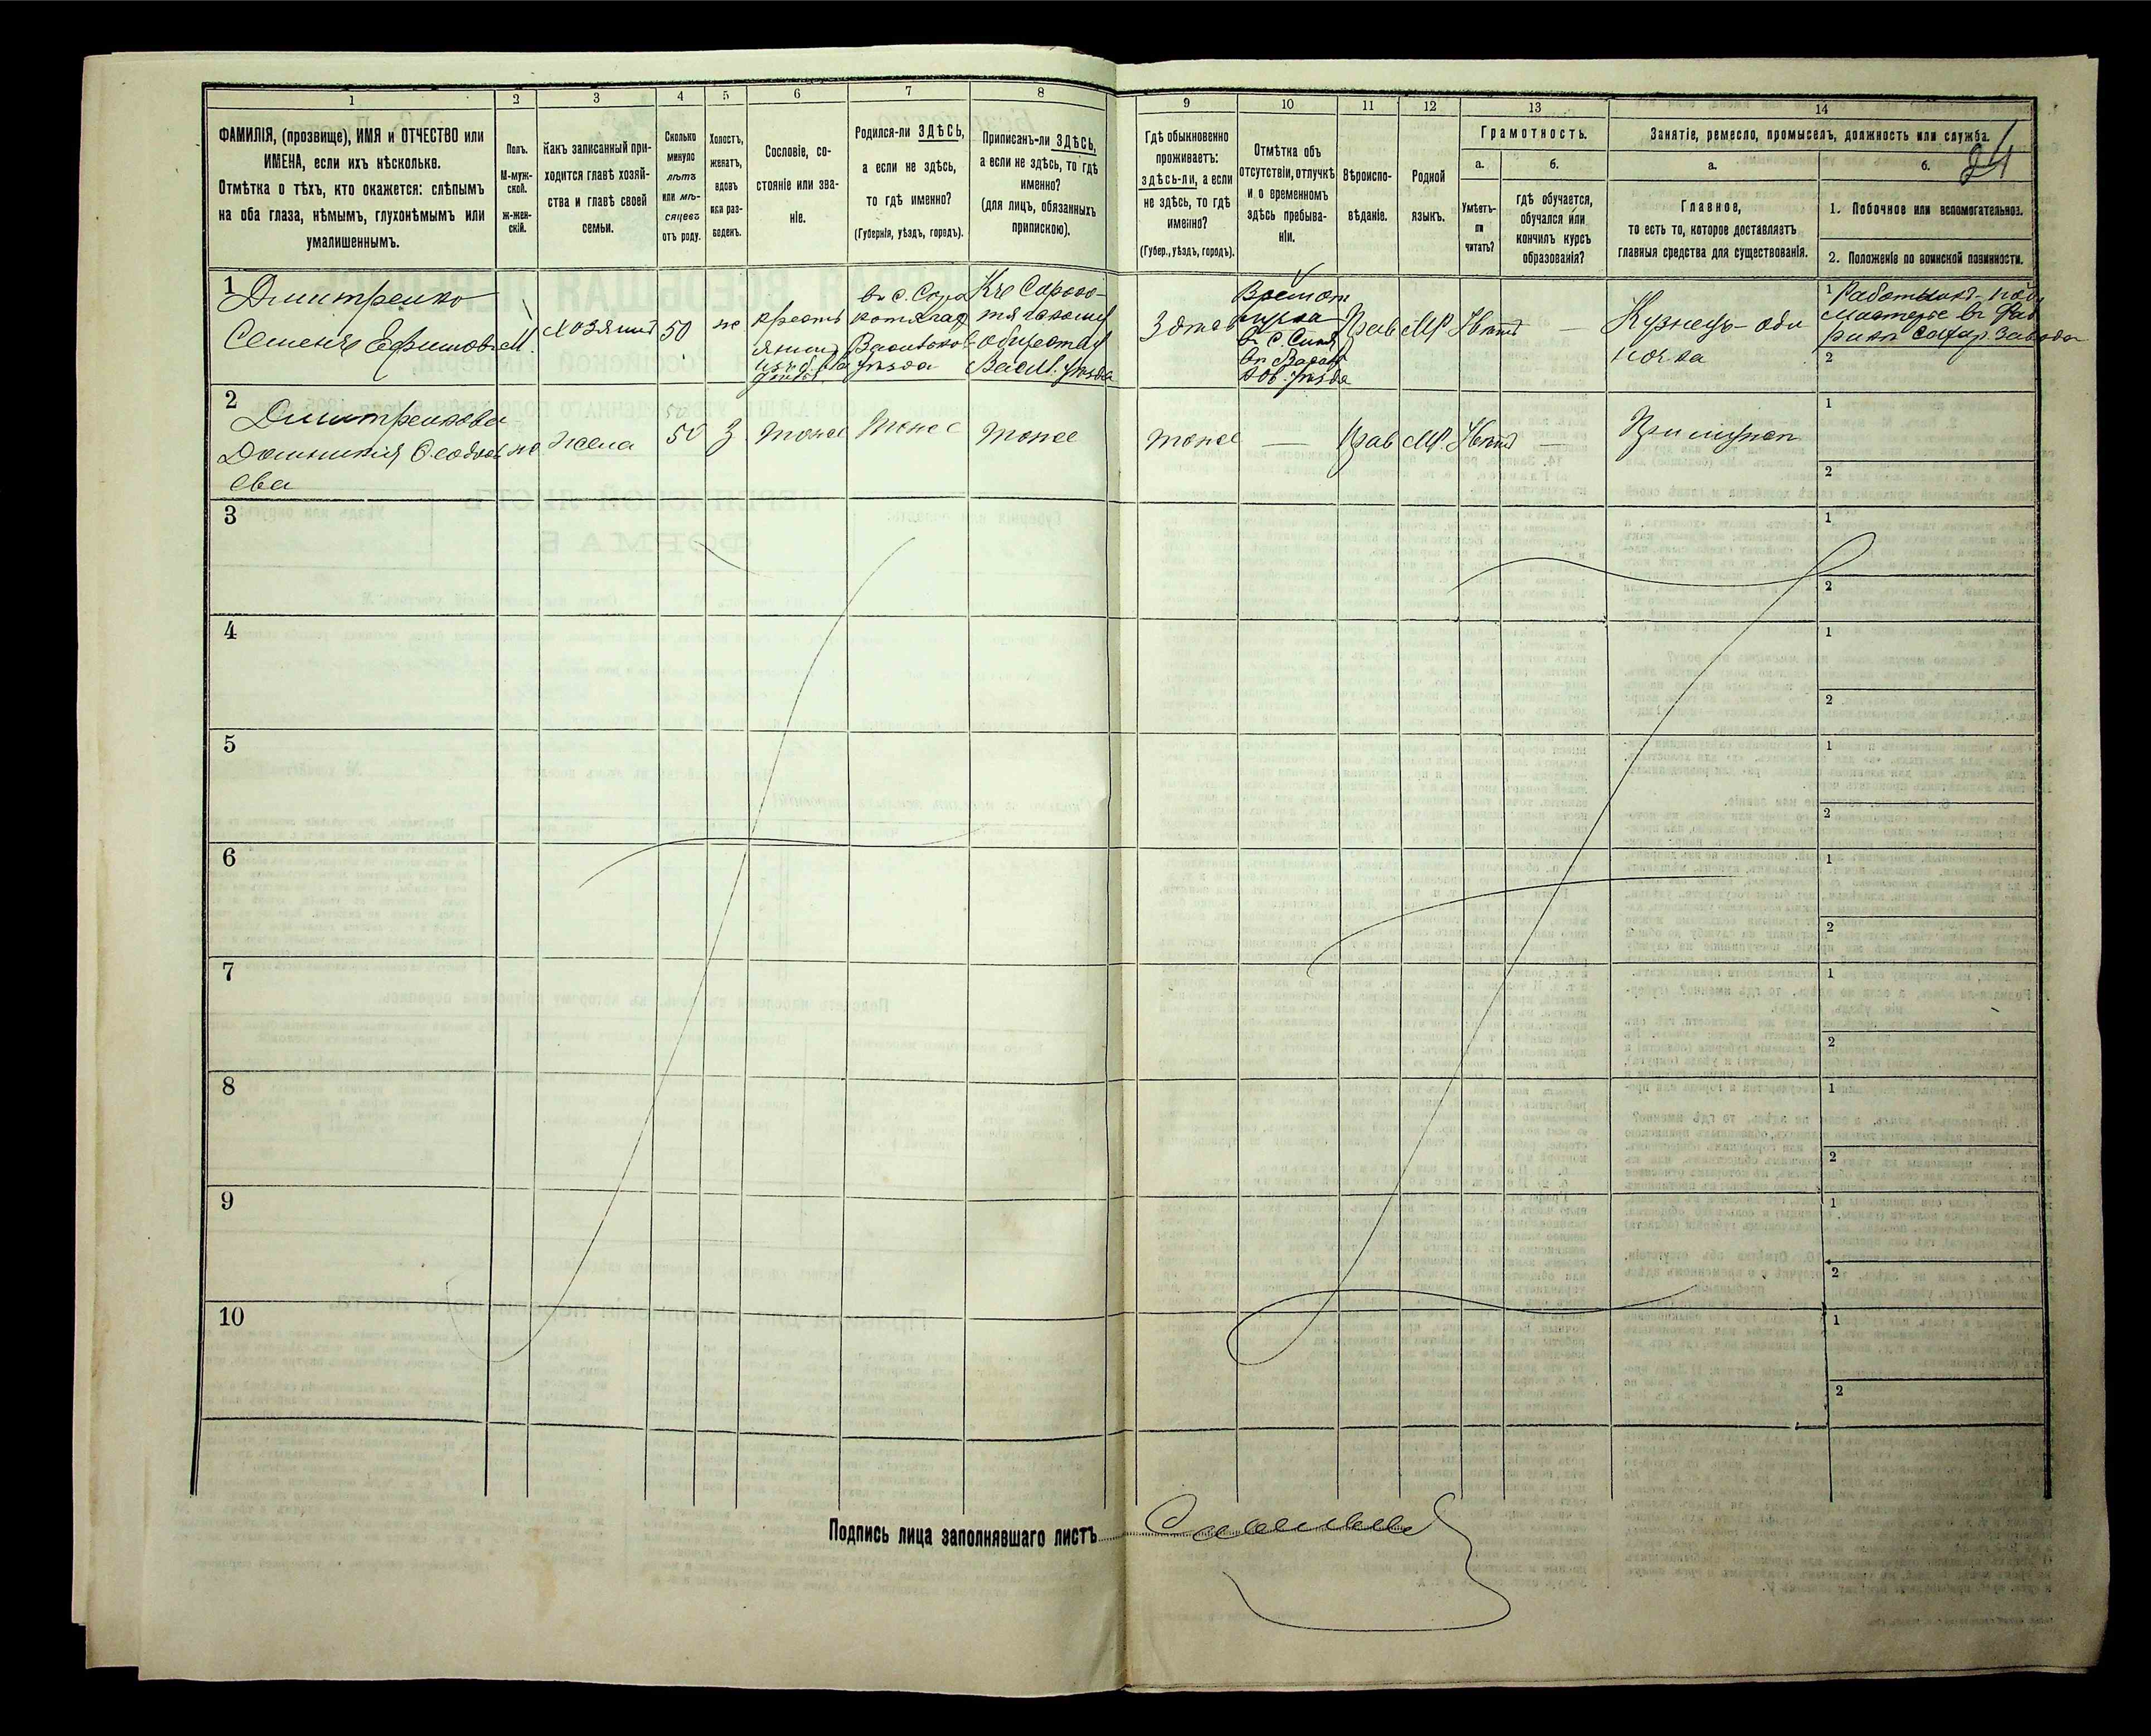 1
2
3
4
5
6
7
8
9
10
11
12
13
14
ФАМИЛІЯ, (прозвище), ИМЯ и ОТЧЕСТВО или
ИМЕНА, если ихъ нѣсколько.
Отмѣтка о тѣхъ, кто окажется: слѣпымъ
на оба глаза, нѣмымъ, глухонѣмымъ или
умалишеннымъ.
Полъ.
М-муж-
ской.
Ж-жен-
скій.
Какъ записанный при-
ходится главѣ хозяй-
ства и главѣ своей
семьи.
Сколько
минуло
лѣтъ
или мѣ-
сяцевъ
отъ роду.
Холостъ,
женатъ,
вдовъ
или раз-
веденъ.
Сословіе, со-
стояніе или зва-
ніе.
Родился-ли ЗДѢСЬ,
а если не здѣсь,
то гдѣ именно?
(Губернія, уѣздъ, городъ).
Приписанъ-ли ЗДѢСЬ,
а если не здѣсь, то гдѣ
именно?
(для лицъ, обязанныхъ
припискою).
Гдѣ обыкновенно
проживаетъ:
здѣсь-ли, а если
не здѣсь, то гдѣ
именно?
(Губер., уѣздъ, городъ).
Отмѣтка объ
отсутствіи, отлучкѣ
и о временномъ
здѣсь пребыва-
ніи.
Вѣроиспо-
вѣданіе.
Родной
языкъ.
Грамотность.
а.
б.
Умѣетъ-
ли
читать?
гдѣ обучается,
обучался или
кончилъ курсъ
образованія?
Занятіе, ремесло, промыселъ, должность или служба.
24
а.
б.
Главное,
то есть то, которое доставляетъ
главныя средства для существованія.
1. Побочное или вспомогательное.
2. Положеніе по воинской повинности.
1
Дмитренко
Семенъ Ефимовъ
М
хозяинъ
50
ж
Кресть
янинъ
въ с. Соро
котягах
Васильков
уѣзда
Къ Сороко-
тягскому
обществу
Васил. уѣзда
Здѣсь
Времен от
лучка
въ с.
Прав
МР
Нѣтъ
—
Кузнецъ-оди
ночка
1
Работникъ-
Мастеръ въ Фаб
рикѣ сахар завода
2
2
Дмитренкова
Домникія Ѳеодось
ева
ж
Жена
50
З
Тоже
Тоже
Тоже
Тоже
—
Прав
МР
Нѣтъ
—
При мужѣ
1
2
3
1
2
4
1
2
5
1
2
6
1
2
7
1
2
8
1
2
9
1
2
10
1
2
Подпись лица заполнявшаго листъ